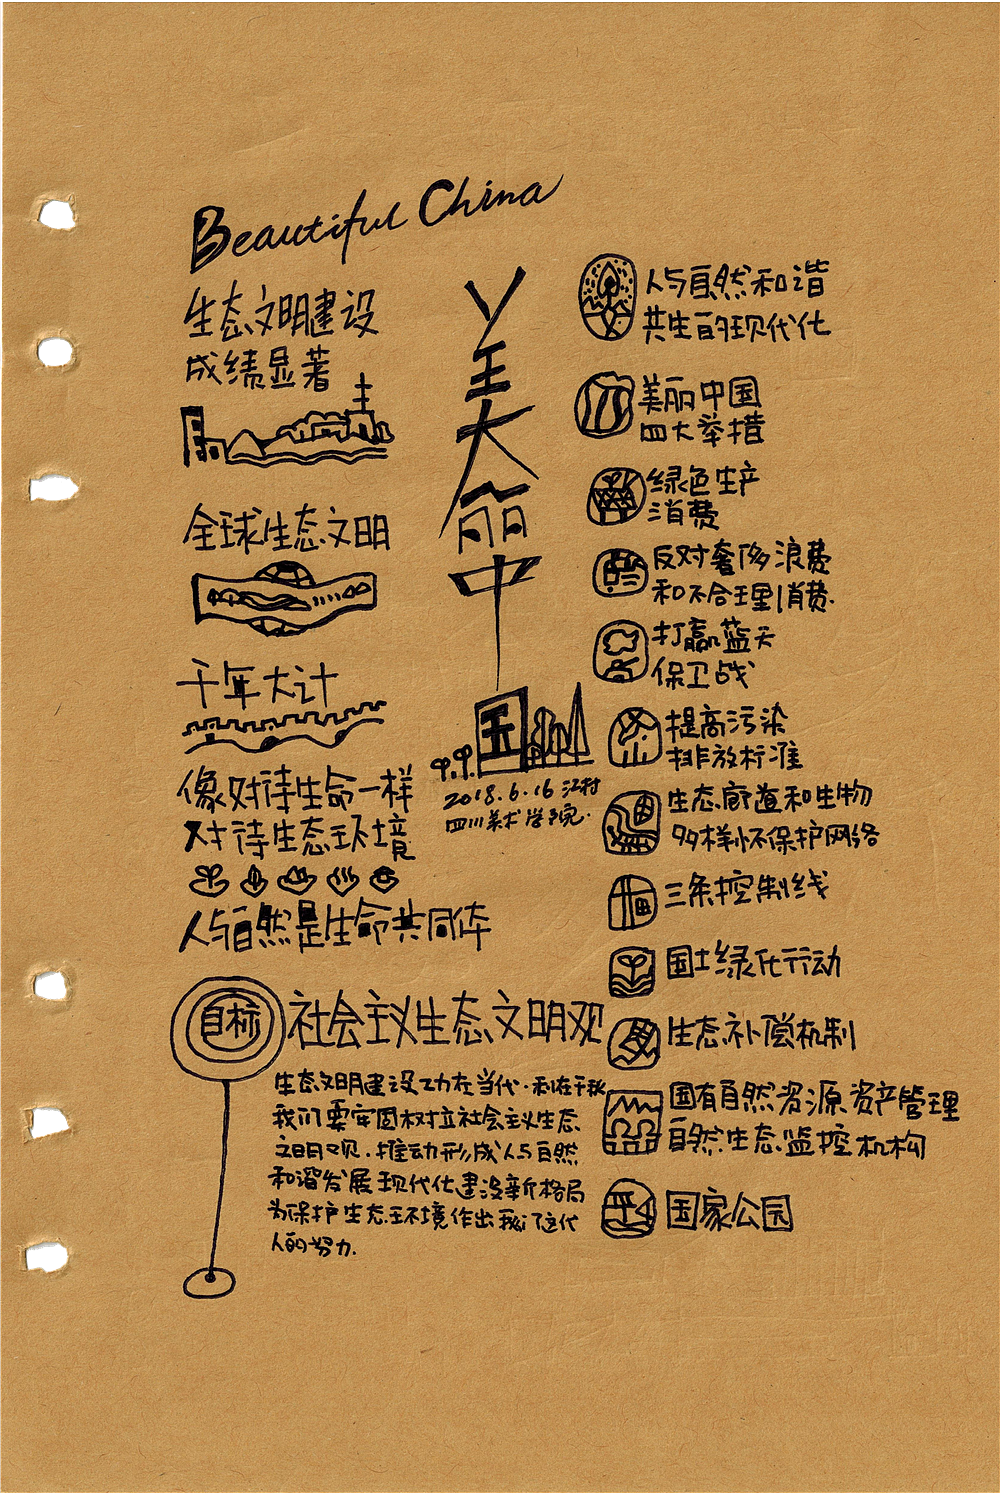 Beautiful China
生态文明建设
成绩显著
全球生态文明
千年大计
像对待生命一样
对待生态环境
人与自然是生命共同体
美丽中国
2018.6.16 江村
四川美术学院.
人与自然和谐
共生的现代化
美丽中国
四大举措
绿色生产
消费
反对奢侈浪费
和不合理消费.
打赢蓝天
保卫战
提高污染
排放标准
生态廊道和生物
多样怀保护网络
三条控制线
国土绿化行动
生态补偿机制
国有自然资源资产管理
自然生态监控机构
国家公园
目标
社会主义生态文明观
生态文明建设功在当代·利在千秋
我们要牢固树立社会主义生态
文明观.推动形成人与自然
和谐发展现代化建设新格局
为保护生态环境作出我们这代
人的努力.